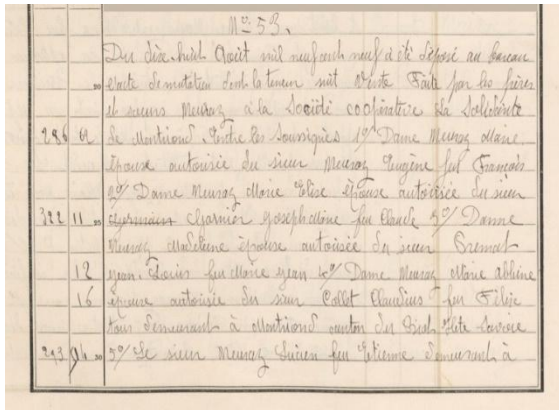 N° 53.
Du dix-huit Août mil neuf cent neuf a été déposé au bureau
20 l'acte de mutation dont la teneur suit Vente Faite par les frères
et sœurs Meuroz à la Société coopérative La Solidarité
286 a de Montriond. Entre les Soussignés 1°/ Dame Meuroz Marie
épouse autorisée du sieur Meuroz Eugène feu François
2°/ Dame Meuroz Marie Elise épouse autorisée du sieur
322 11 25 Garnier Joseph Marie feu Claude 3°/ Dame
Meuroz Madeleine épouse autorisée du sieur Premat
12 Jean-Louis feu Marie Jean 4°/ Dame Meuroz Marie
16 épouse autorisée du sieur Collet Claudius feu
tous demeurant à Montriond canton du Biot Hte Savoie
293 30 5°/ Le sieur Meuroz Lucien feu Etienne demeurant à